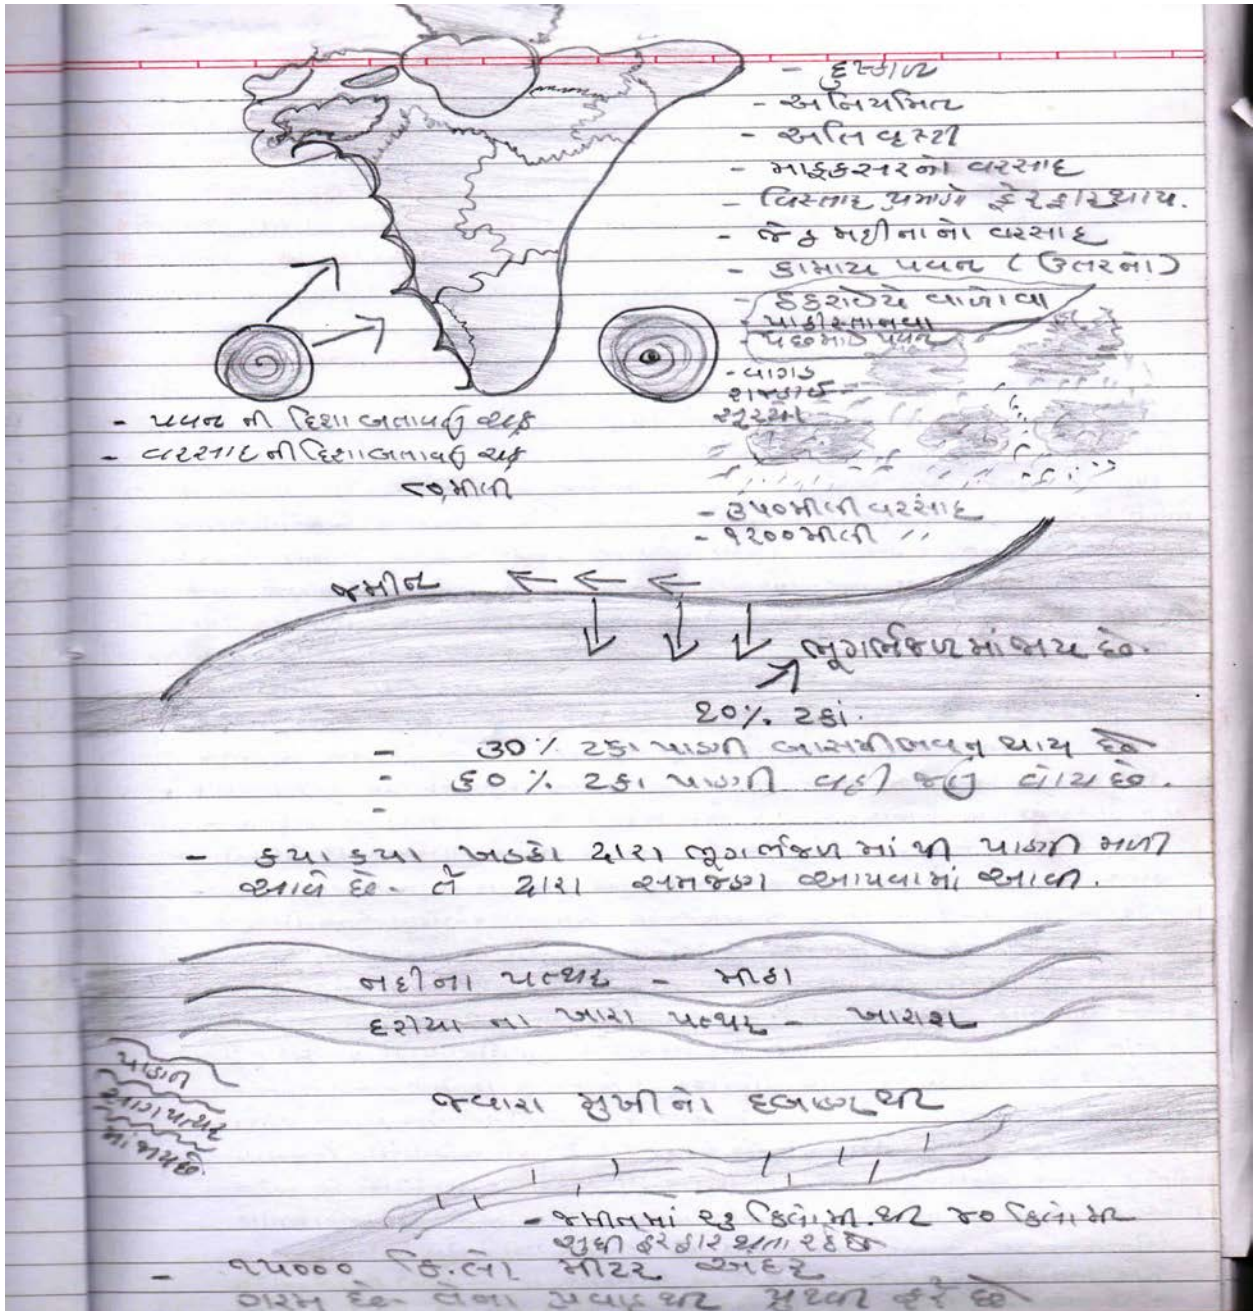 - દુષ્કાળ
- અનિયમિત
- અતિ વૃસ્ટી
- માફકસરનો વરસાદ
- વિસ્તાર પ્રમાણે ફેરફાર થાય.
- જેઠ મહીનાનો વરસાદ
- કામાય પવન ( ઉતરનો )
પાકીસ્તાનના
પવન
- વાગડ
- પવન ની દિશા બતાવતું ચક્ર
- વરસાદ ની દિશા બતાવતું ચક્ર
૮૦ મીલી
- ૩૫૦ મીલી વરસાદ
- ૧૨૦૦ મીલી ,,
જમીન
ભૂગર્ભજળ માં જાય છે.
૧૦% ટકા.
- ૩૦ % ટકા પાણી બાસ્પીભવન થાય છે
- ૬૦ % ટકા પાણી વહી જતું હોય છે.
-
- કયા કયા ખડકો દ્વારા ભૂગર્ભજળ માં થી પાણી મળી
આવે છે. તે દ્વારા સમજણ આપવામાં આવી.
નદીના પત્થર - મીઠા
દરીયા ના ખારા પત્થર - ખારાશ
જવારા મુખીનો દબાણ થર
- જમીનમાં કિલો મી. થર ૪૦ કિલો મી
સુધી ફેરફાર થતા રહે છે
- ૧૫૦૦૦ કિ.લો મીટર અંદર
ગરમ છે. તેના પ્રવાહ થર પૃથ્વી ફરે છે